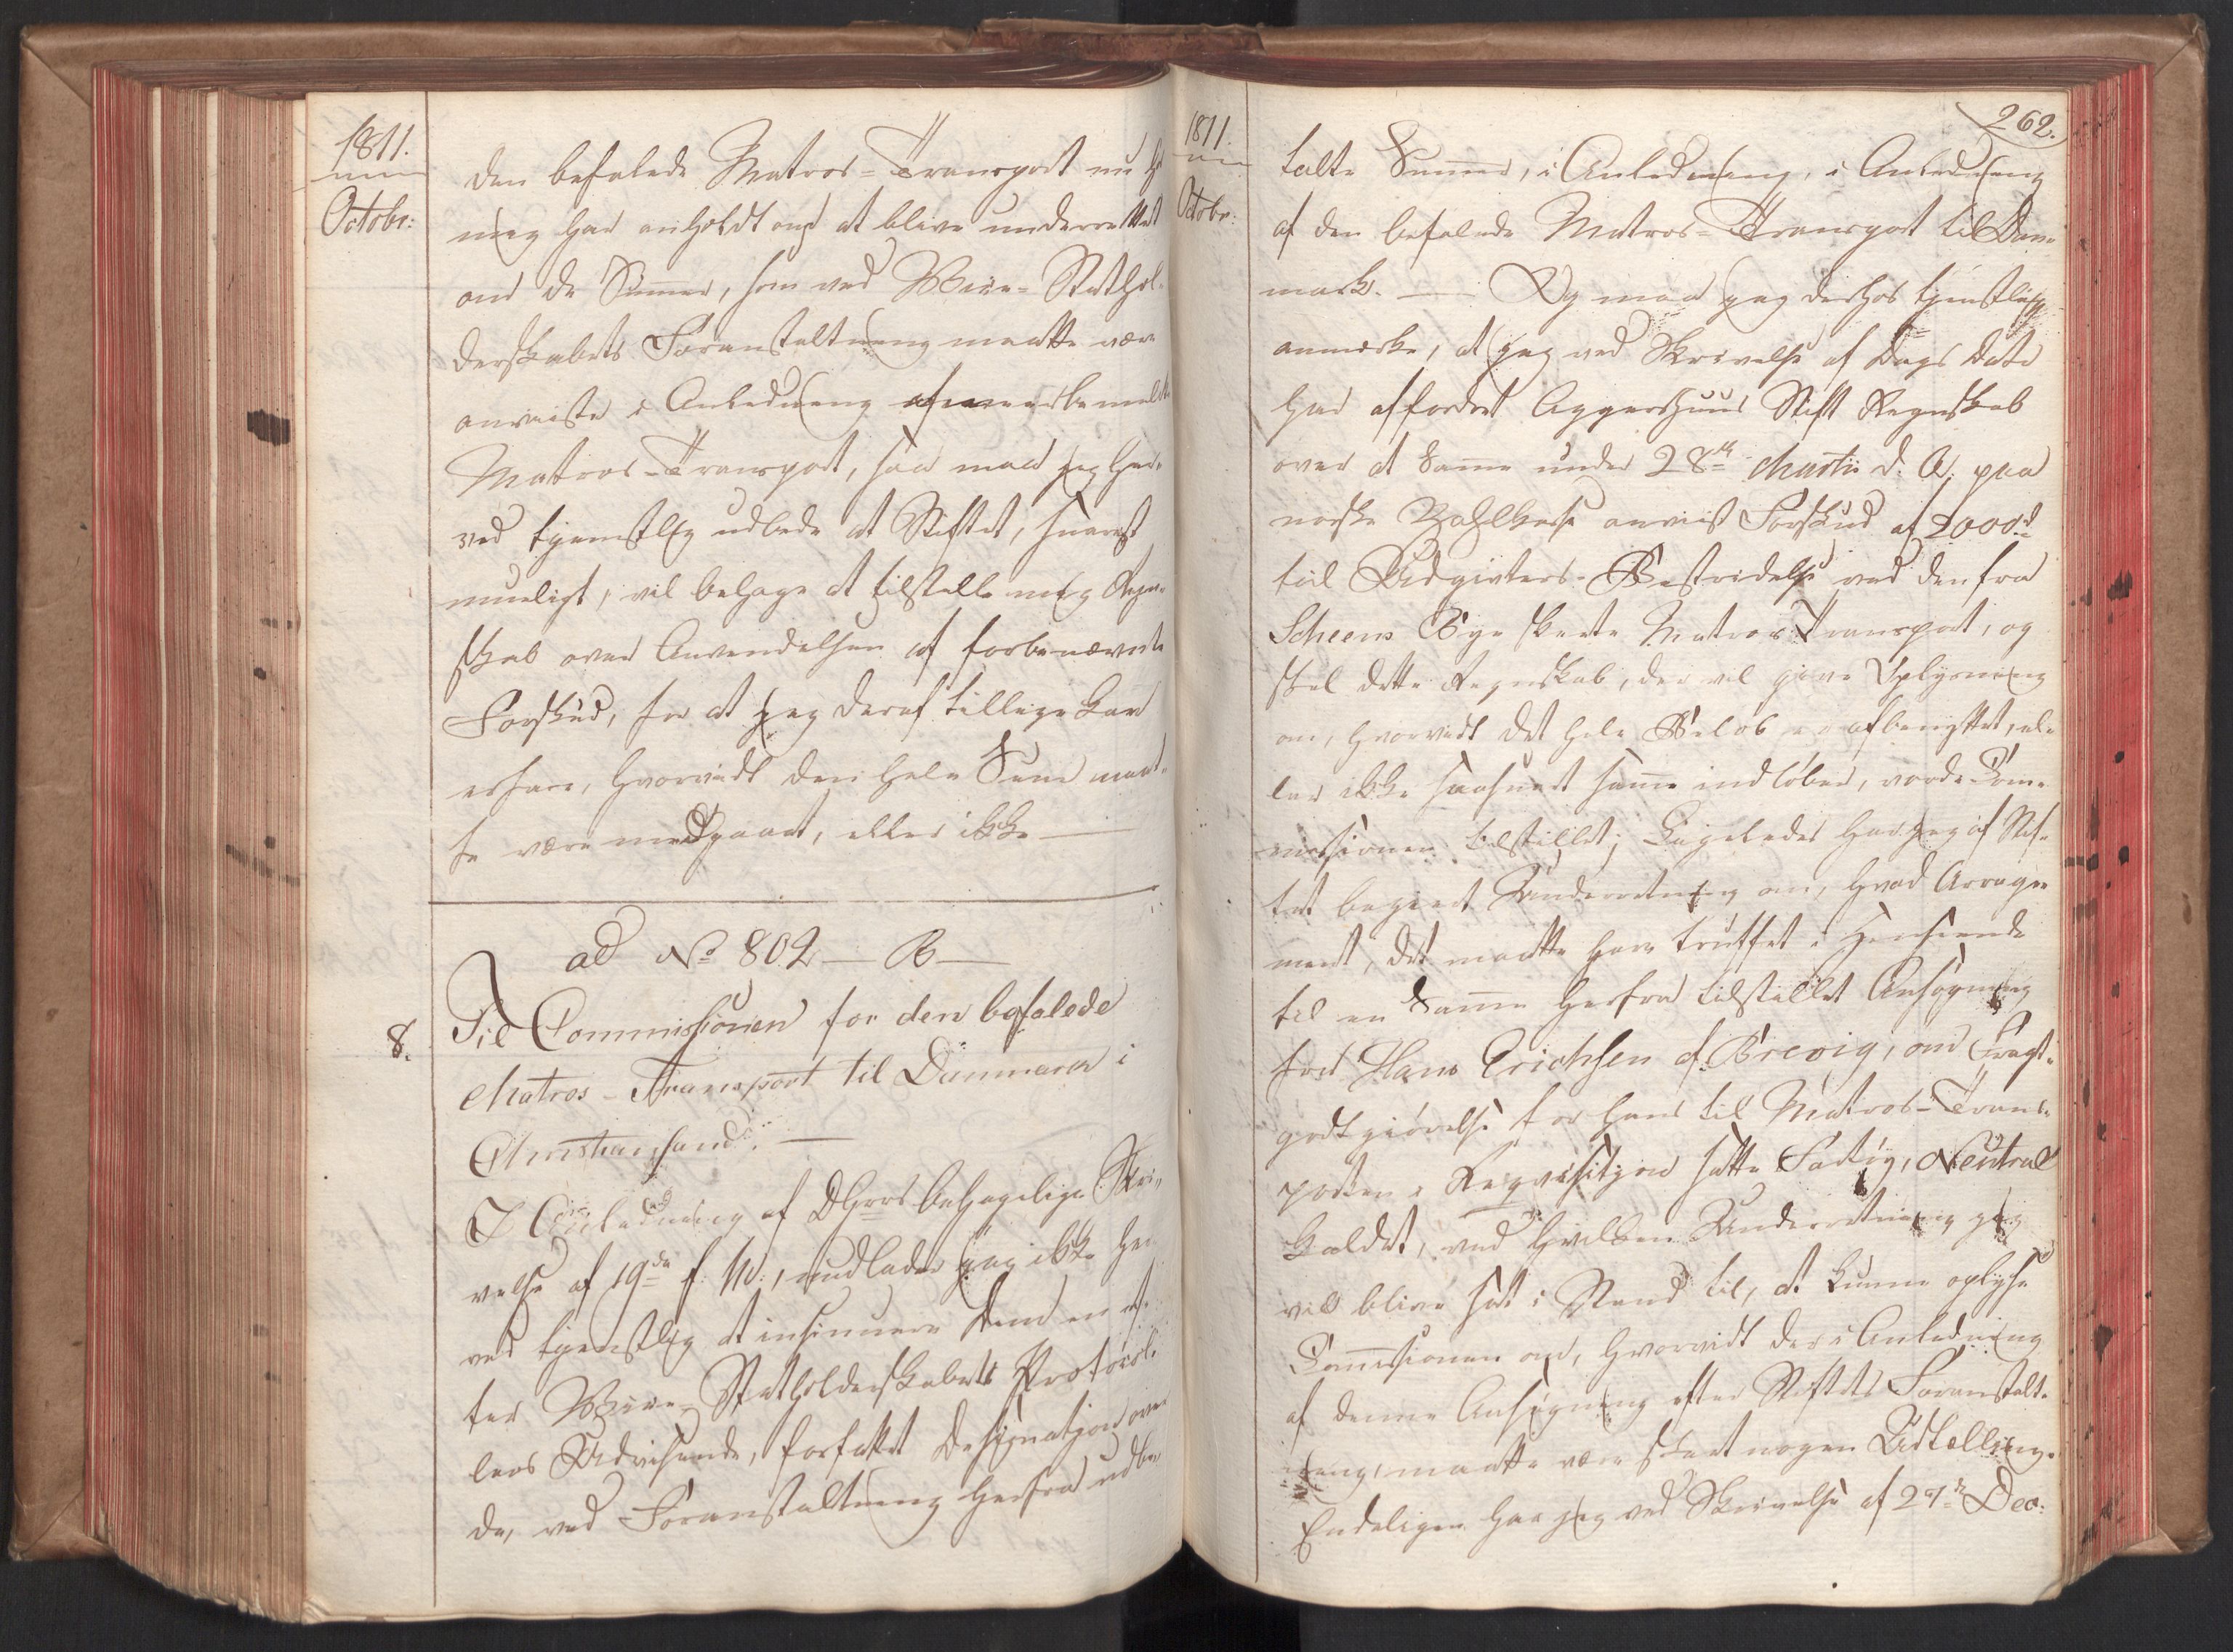 1811.
Octobr:
den befalede Matros-Transport nu hos
mig har anholdt om at blive underrettet
om de Summer, som ved Vice-Stathol-
derskabets Foranstaltning maatte være
anviiste i Anledning af meerbemeldte
Matros-Transport, saa maa jeg her-
ved tjenstlig udbede at Stiftet, snarest
mueligt, vil behage at tilstelle mig Regn-
skab over Anvendelsen af forbenævnte
Forskud, for at jeg deraf tillige kan
erfare, hvorvidt den hele Sum maat-
te være medgaaet, eller ikke —
ad No 802 — B —
8.
Til Commissionen for den befalede
Matros-Transport til Danmark i
Christiansand. —
I Anledning af DHrrs behagelige Skri-
velse af 19de f: M:, undlader jeg ikke her-
ved tjenstlig at insinuere Dem en ef-
ter Vice-Statholderskabets Protocol-
lers Udvisende, forfattet Designation over
de, ved Foranstaltning herfra udbe-
1811.
Octobr:
262.
talte Summer, i Anledning, i Anledning
af den befalede Matros-Transport til Dan-
mark. — Og maa jeg derhos tjenstligst
anmærke, at jeg ved Skrivelse af Dags Dato
har affordret Aggershuus Stift Regnskab
over et samme under 28de Martii d: A: paa
norske Zahlkasse anviist Forskud af 2000rd
til Udgivters-Bestridelse ved den fra
Scheens Bye skeete Matros-Transport, og
skal dette Regnskab, der vil give Oplysning
om, hvorvidt det hele Beløb er afbenyttet, el-
ler ikke saasnart samme indløber, vorde Com-
missionen tilstillet; Ligeledes har jeg af Stif-
tet begiert Underretning om, hvad Arrage-
ment, det maatte have truffet i Henseende
til en samme herfra tilstillet Ansøgning
fra Hans Erichsen af Brevig, om Fragt-
godtgiørelse for hans til Matros-Trans-
porten i Reqvisitjon satte Fartøy, Neutral
kaldet, ved hvilken Underretning jeg
vil blive sat i Stand til, at kunne oplyse
Commissionen om, hvorvidt der i Anledning
af denne Ansøgning efter Stiftets Foranstalt-
ning, maatte være skeet nogen Udtælling.
Endeligen har jeg ved Skrivelse af 27de Dec: